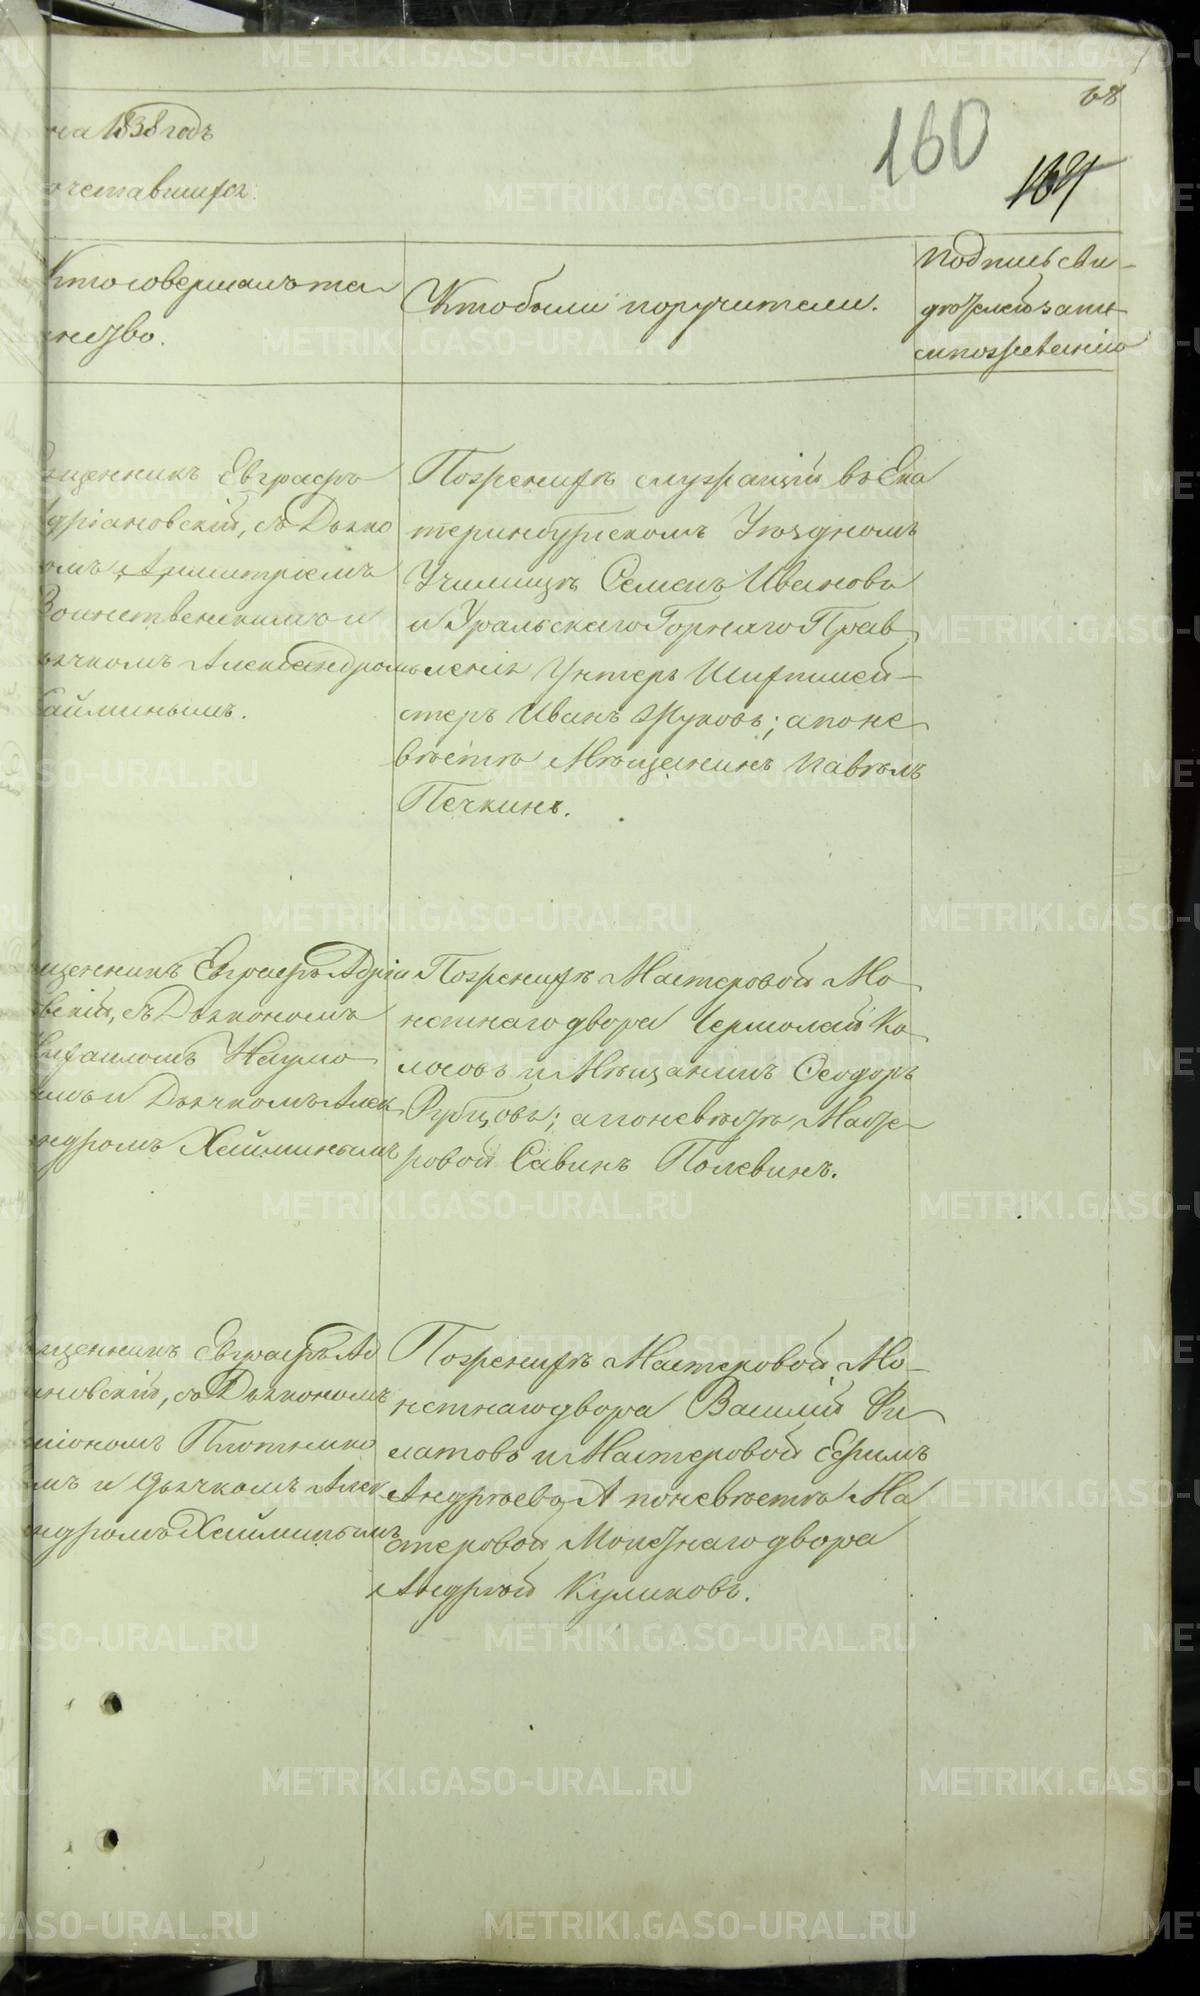 68
160
на 1838 годъ
очетавшихся.
Кто совершалъ та-
инство.
Кто были поручители.
Подпись сви-
дѣтелей запи-
си по желанію
щенникъ Евграфъ
дріановскій, съ Діако
омъ Димитріемъ
Воинственскимъ и
ячкомъ Александромъ
айминымъ.
По женихѣ служащій въ Ека
теринбургскомъ Уѣздномъ
Училищѣ Семенъ Ивановъ
и Уральскаго Горнаго Прав
ленія Унтеръ Шихтмей-
стеръ Иванъ Жуковъ; а по не
вѣстѣ Мѣщанинъ Павелъ
Печкинъ.
щенникъ Евграфъ Адріа
вскій, съ Діакономъ
ихаиломъ Наумо
ымъ и Дьячкомъ Алек
ндромъ Хайминымъ
По женихѣ Мастеровой Мо
нетнаго двора Ермолай Ко
лосовъ и Мѣщанинъ Ѳеодоръ
Рубцовъ; а по невѣстѣ Масте-
ровой Савинъ Полевинъ.
щенникъ Евграфъ Ад
ановскій, съ Діакономъ
Плотнико
мъ и Дьячкомъ Алек
ндромъ Хайминымъ
По женихѣ Мастеровой Мо-
нетнаго двора Василій Фи
латовъ и Мастеровой Ефимъ
Андреевъ, А по невѣстѣ Ма
стеровой Монетнаго двора
Андрей Куликовъ.
METRIKI.GASO-URAL.RU